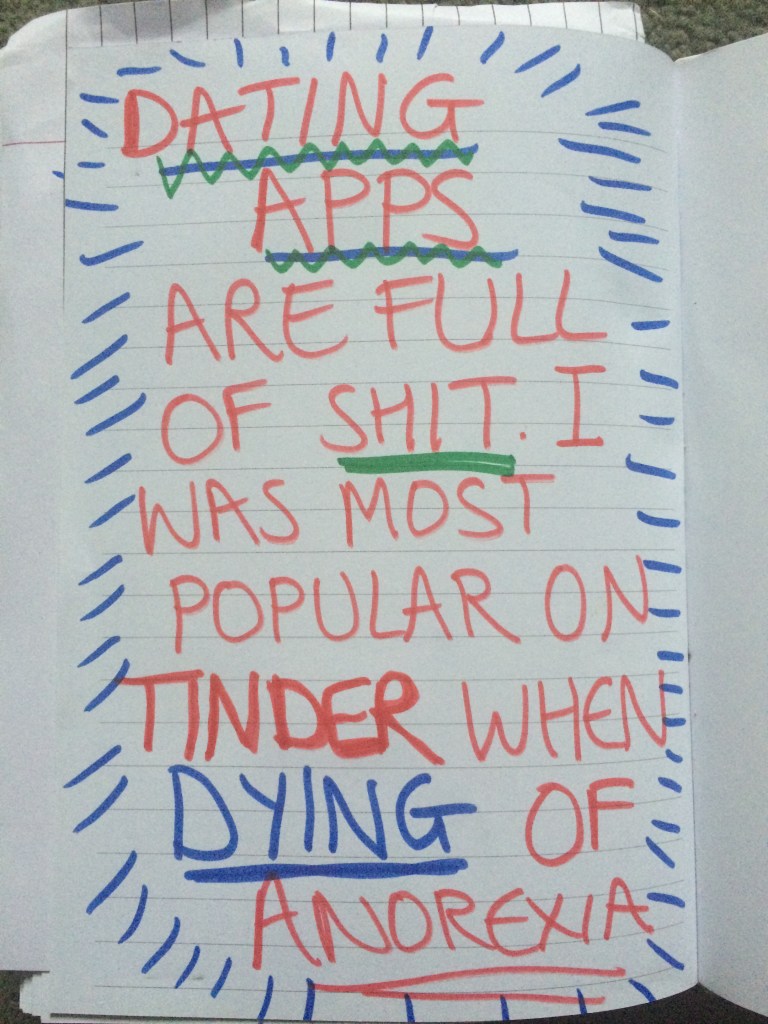 DATING
APPS
ARE FULL
OF SHIT. I
WAS MOST
POPULAR ON
TINDER WHEN
DYING OF
ANOREXIA